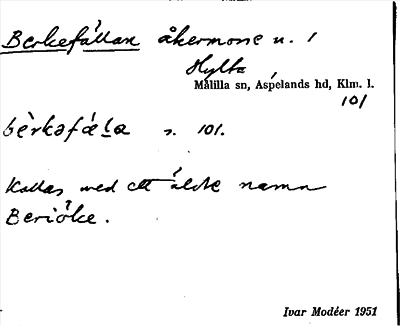 Berkefällan åkermosse u. 1
Hylta
Målilla sn, Aspelands hd, Klm. l.
101
s. 101.
Kallas med ett äldre namn
Ivar Modéer 1951